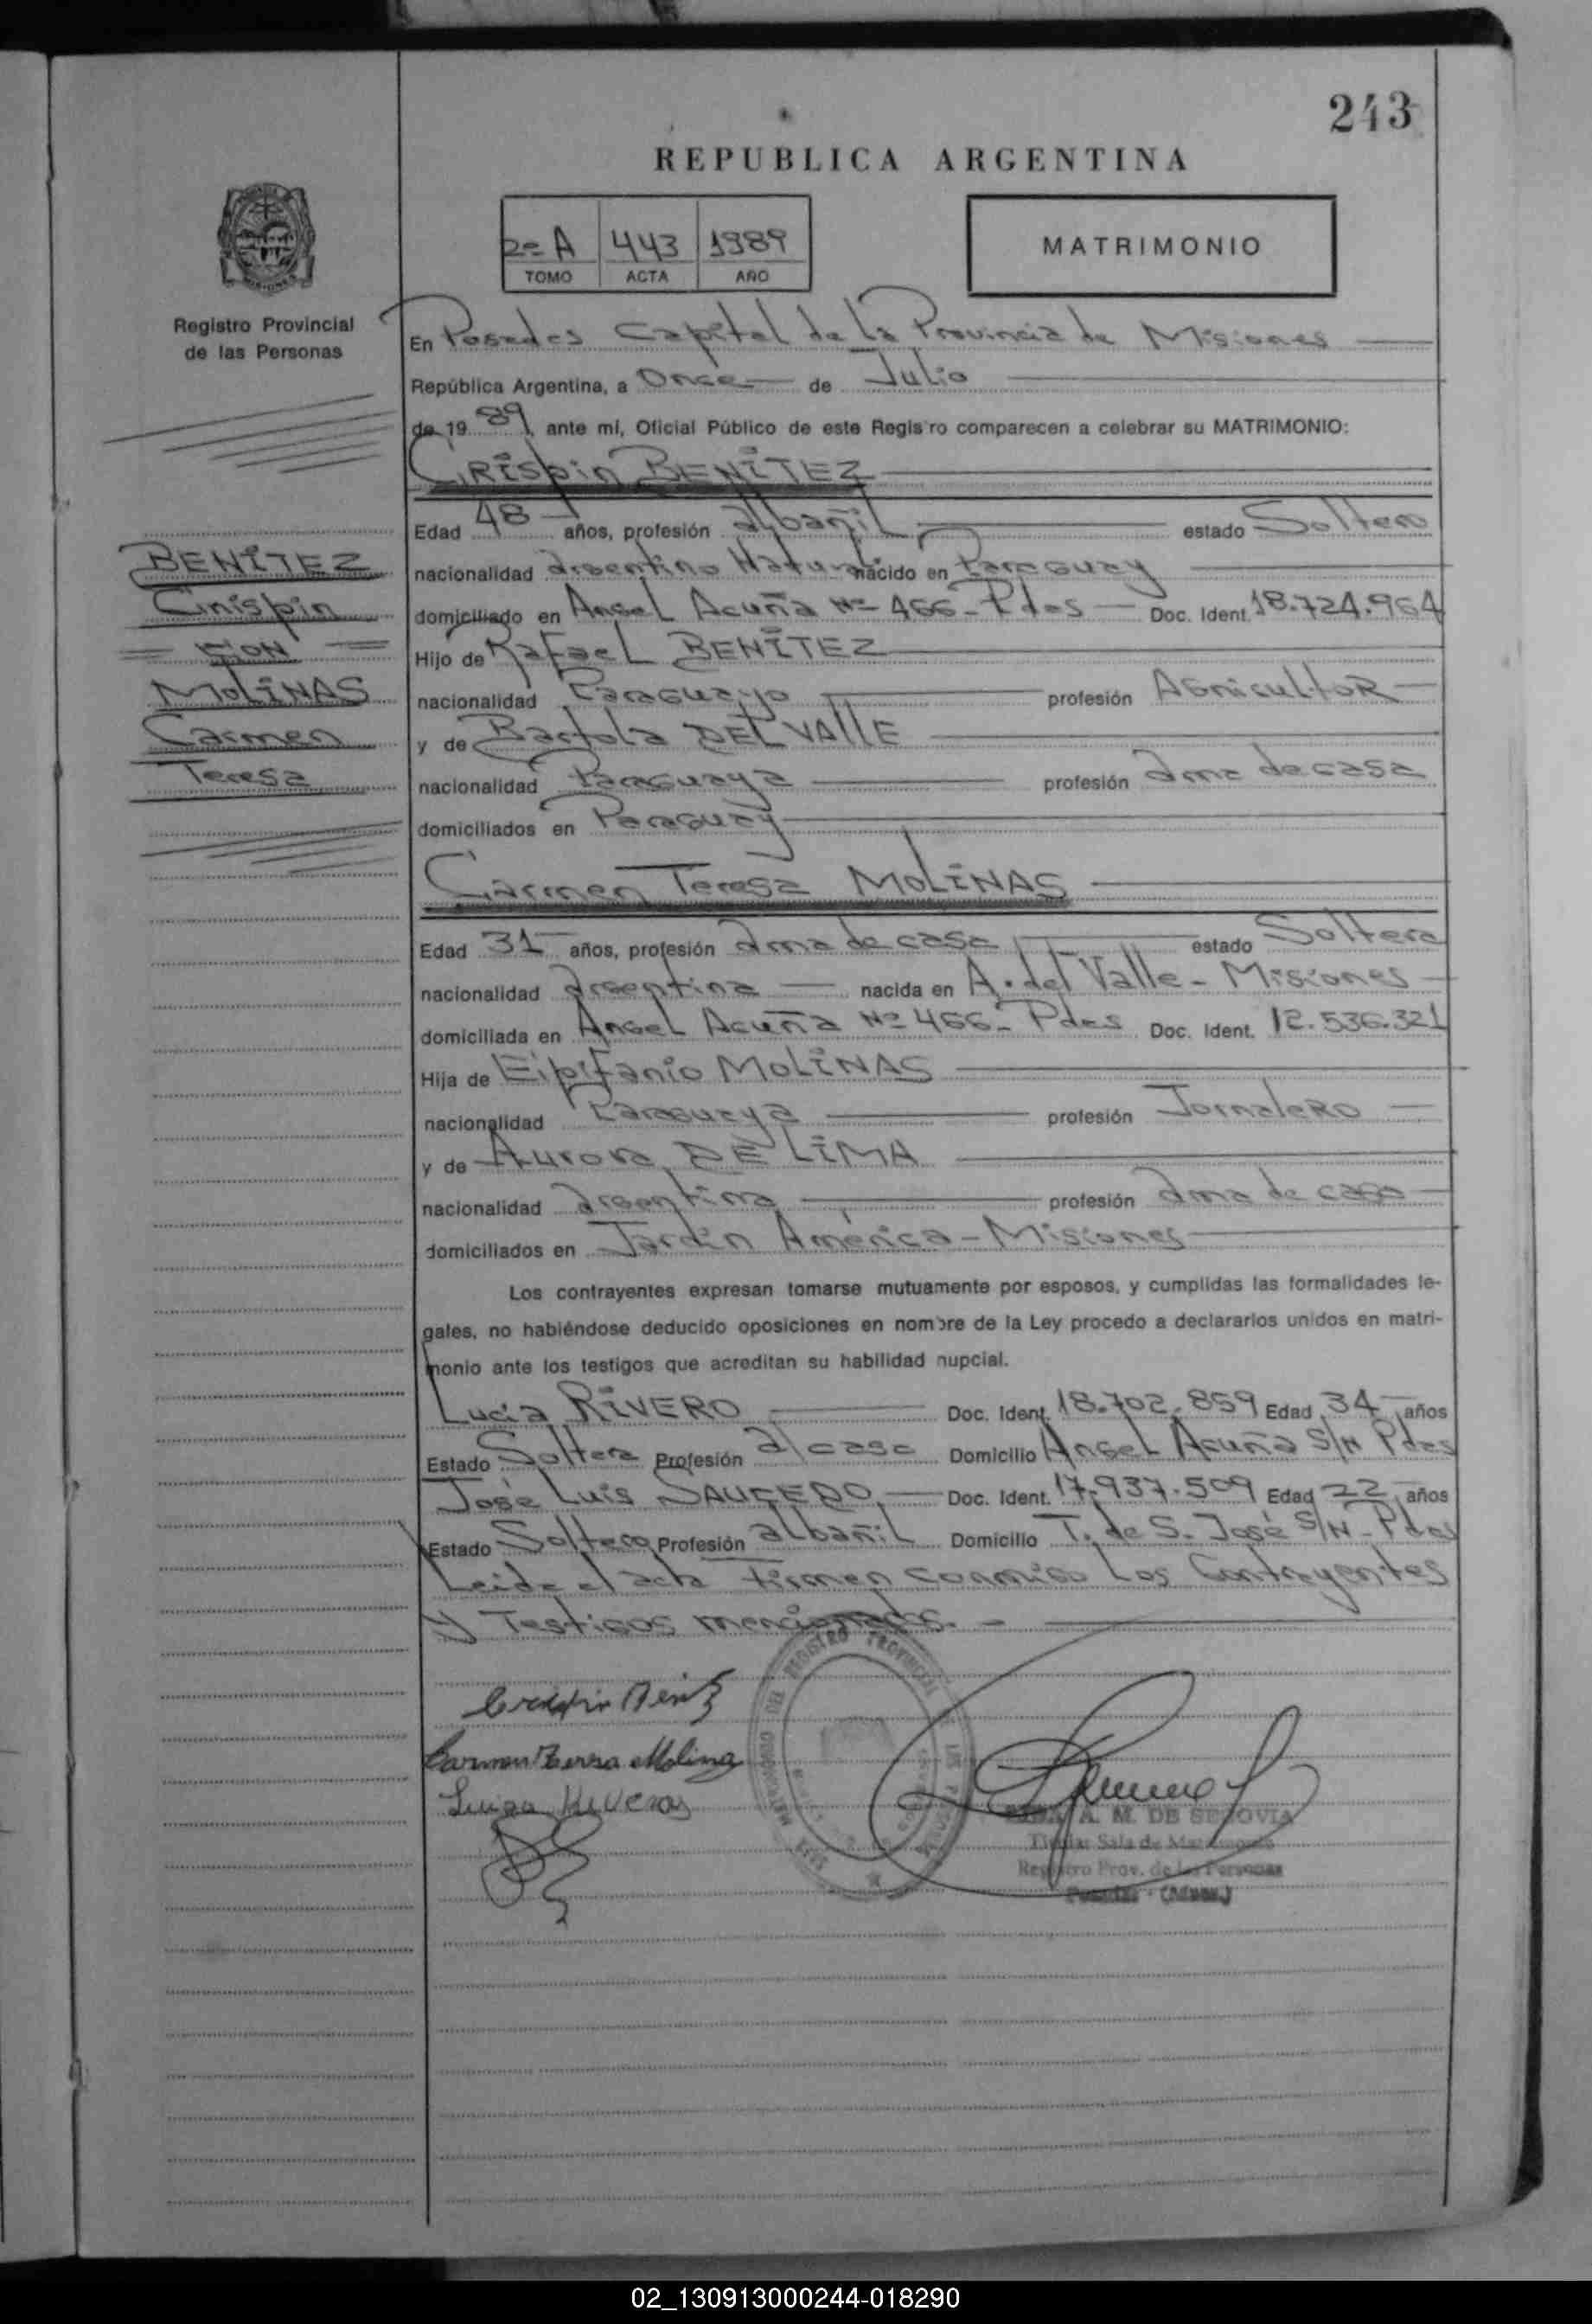 243
REPUBLICA ARGENTINA
2º A 443 1989
TOMO ACTA AÑO
MATRIMONIO
Registro Provincial
de las Personas
En Posadas Capital de la Provincia de Misiones
República Argentina, a Once de Julio
de 19 89, ante mí, Oficial Público de este Registro comparecen a celebrar su MATRIMONIO:
Crispin BENITEZ
Edad 48 años, profesión albañil estado Soltero
nacionalidad argentino Natural nacido en Paraguay
domiciliado en Angel Acuña Nº 466 - Pdas Doc. Ident. 18.724.964
Hijo de Rafael BENITEZ
nacionalidad Paraguayo profesión Agricultor
y de Bartola DEL VALLE
nacionalidad Paraguaya profesión ama de casa
domiciliados en Paraguay
BENITEZ
Crispin
con
MOLINAS
Carmen
Teresa
Carmen Teresa MOLINAS
Edad 31 años, profesión ama de casa estado Soltera
nacionalidad argentina nacida en A. del Valle - Misiones
domiciliada en Angel Acuña Nº 466 - Pdas Doc. Ident. 12.536.321
Hija de Eipifanio MOLINAS
nacionalidad Paraguaya profesión Jornalero
y de Aurora DE LIMA
nacionalidad argentina profesión ama de casa
domiciliados en Jardin América - Misiones
Los contrayentes expresan tomarse mutuamente por esposos, y cumplidas las formalidades le-
gales, no habiéndose deducido oposiciones en nombre de la Ley procedo a declararlos unidos en matri-
monio ante los testigos que acreditan su habilidad nupcial.
Lucia RIVERO Doc. Ident. 18.702.859 Edad 34 años
Estado Soltera Profesión a/casa Domicilio Angel Acuña S/N Pdas
José Luis SAUCEDO Doc. Ident. 17.937.509 Edad 22 años
Estado Soltero Profesión albañil Domicilio T. de S. José S/N - Pdas
Leida el acta firman conmigo Los Contrayentes
y Testigos mencionados. -
Crispin Benitez
Carmen Teresa Molina
REGISTRO PROVINCIAL DE LAS PERSONAS
A. M. DE SEGOVIA
Titular Sala de Matrimonio
Registro Prov. de las Personas
Posadas - (Mnes.)
02_130913000244-018290